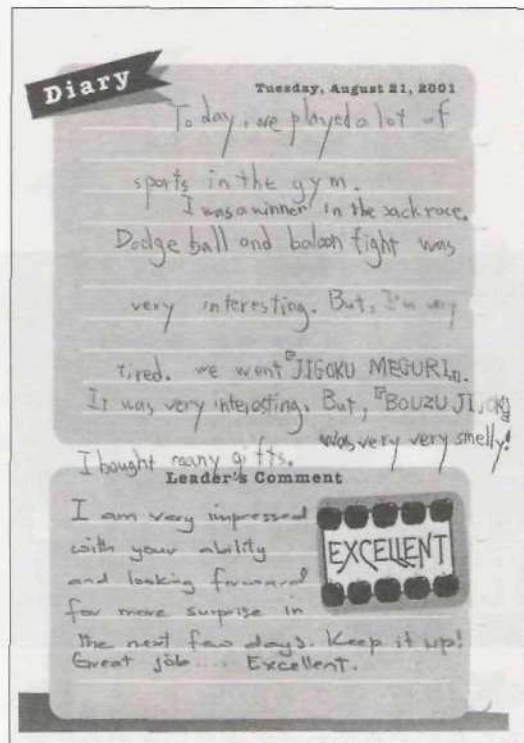 Diary
Tuesday, August 21, 2001
Today, we played a lot of
sports in the gym.
I was a winner in the sack race.
Dodge ball and baloon fight was
very interesting. But, I'm very
tired. we went『JIGOKU MEGURI』.
It was very interesting. But,『BOUZU JIGOKU』
was very very smelly!
I bought many gifts.
Leader's Comment
I am very impressed
with your ability
and looking forward
for more surprise in
the next few days. Keep it up!
Great job.... Excellent.
EXCELLENT